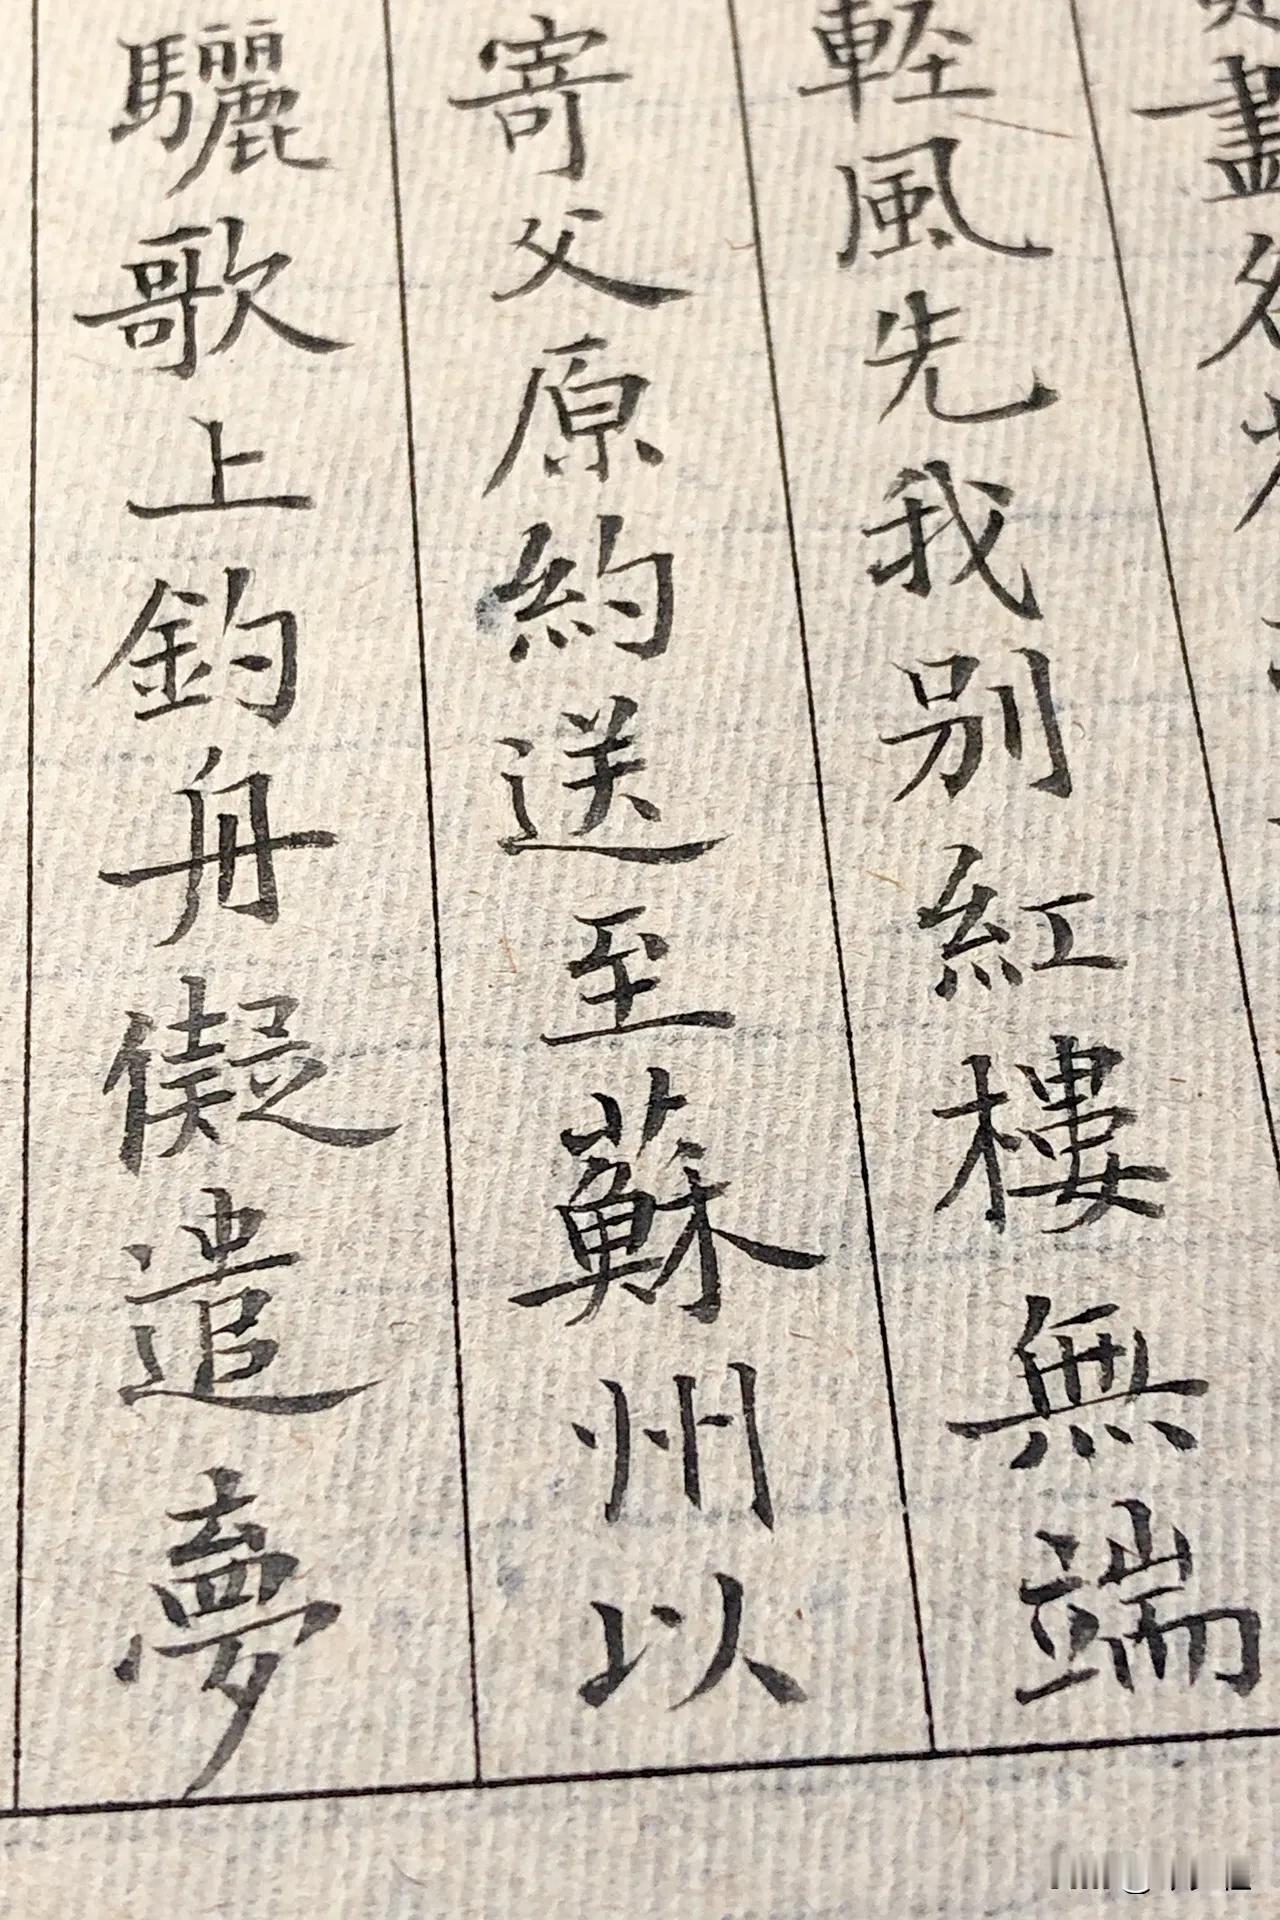 盡
輕風先我別紅樓無端
寄父原約送至蘇州以
驪歌上釣舟儗遣夢